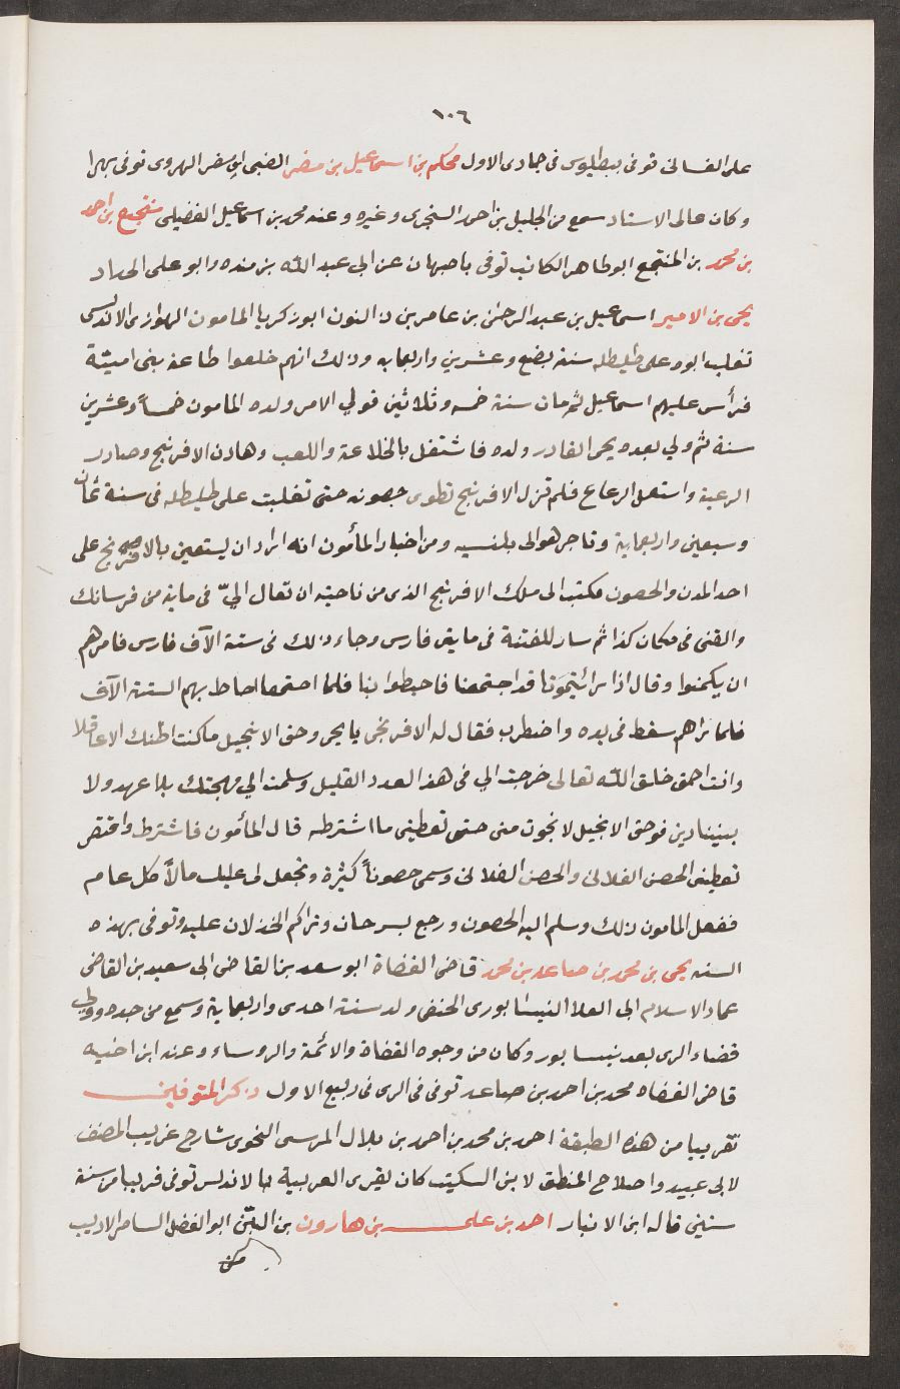 ١٠٦
على الغسانى توفى ببطليوس فى جمادى الاول محكم بن اسماعيل بن مضر الضبى ابو مضر الهروى توفى بهرا
وكان عالى الاسناد سمع من الجليل بن احمد السنجرى وغيره وعنه محمد بن اسماعيل الفضيلى منتجع بن احمد
بن محمد بن المنتجع ابو طاهر الكاتب توفى باصبهان عن ابى عبد الله بن منده وابو على الحداد
يحيى بن الامير اسماعيل بن عبد الرحمن بن عامر بن ذ النون ابو زكريا المامون الهوارى الاندلسى
تغلب ابوه على طليطله سنة بضع وعشرين واربعمايه وذلك انهم خلعوا طاعة بنى امية
فرأس عليهم اسماعيل ثم مات سنة خمسه وثلاثين فولي الامر ولده المامون خمساً وعشرين
سنة ثم ولي بعده يحى القادر ولده فاشتغل بالخلاعة واللعب وهادن الافرنج وصادر
الرعية واستعمل الرعاع فلم تزل الافرنج تطوى حصونه حتى تغلبت على طليطله فى سنة ثمان
وسبعين واربعماية وتاخر هو الى بلنسيه ومن اخبار المأمون انه اراد ان يستعين بالافرنج على
احد المدن والحصون فكتب الى ملك الافرنج الذى من ناحيته ان تعال اليّ فى ماية من فرسانك
والقنى فى مكان كذا ثم سار للفتنة فى مايتى فارس وجاء ذلك فى ستة الآف فارس فامرهم
ان يكمنوا وقال اذا رائيتمونا قد اجتمعنا فاحيطوا بنا فلما اجتمعا احاط بهم الستة الآف
فلما راهم سقط فى يده واضطرب فقال له الافرنجى يا يحيى وحق الانجيل ما كنت اظنك الا عاقلا
وانت احمق خلق الله تعالى خرجت الي فى هذ العدد القليل وسلمت الي مهجتك بلا عهد ولا
بيننا دين فوحق الانجيل لا نجوت منى حتى تعطينى ما اشترطه قال المأمون فاشترط واقتصر
تعطينى الحصن الفلانى والحصن الفلانى وسمى حصوناً كثيرة وتجعل لى عليك مالاً كل عام
ففعل المامون ذلك وسلم اليه الحصون ورجع بسرحان وتراكم الخذلان عليه وتوفى بهذه
السنه يحى بن محمد بن صاعد بن محمد قاضى القضاة ابو سعد بن القاضى ابى سعيد بن القاضى
عماد الاسلام ابى العلا النيسابورى الحنفى ولد سنة احدى واربعماية وسمع من جده وولي
قضاء الرى بعد نيسابور وكان من وجوه القضاة والائمة والروساء وعنه ابن اخيه
قاضى القضاه محمد بن احمد بن صاعد توفى فى الرى فى ربيع الاول ذكر المتوفين
تقريبا من هذه الطبقة احمد بن محمد بن احمد بن بلال المرسى النحوى شارح غريب المصنف
لابى عبيد واصلاح المنطق لابن السكيت كان يقرى العربية بالاندلس توفى قريبا من سنة
ستين قاله ابن الابار احمد بن على بن هارون بن البن ابو الفضل السامرى الاديب